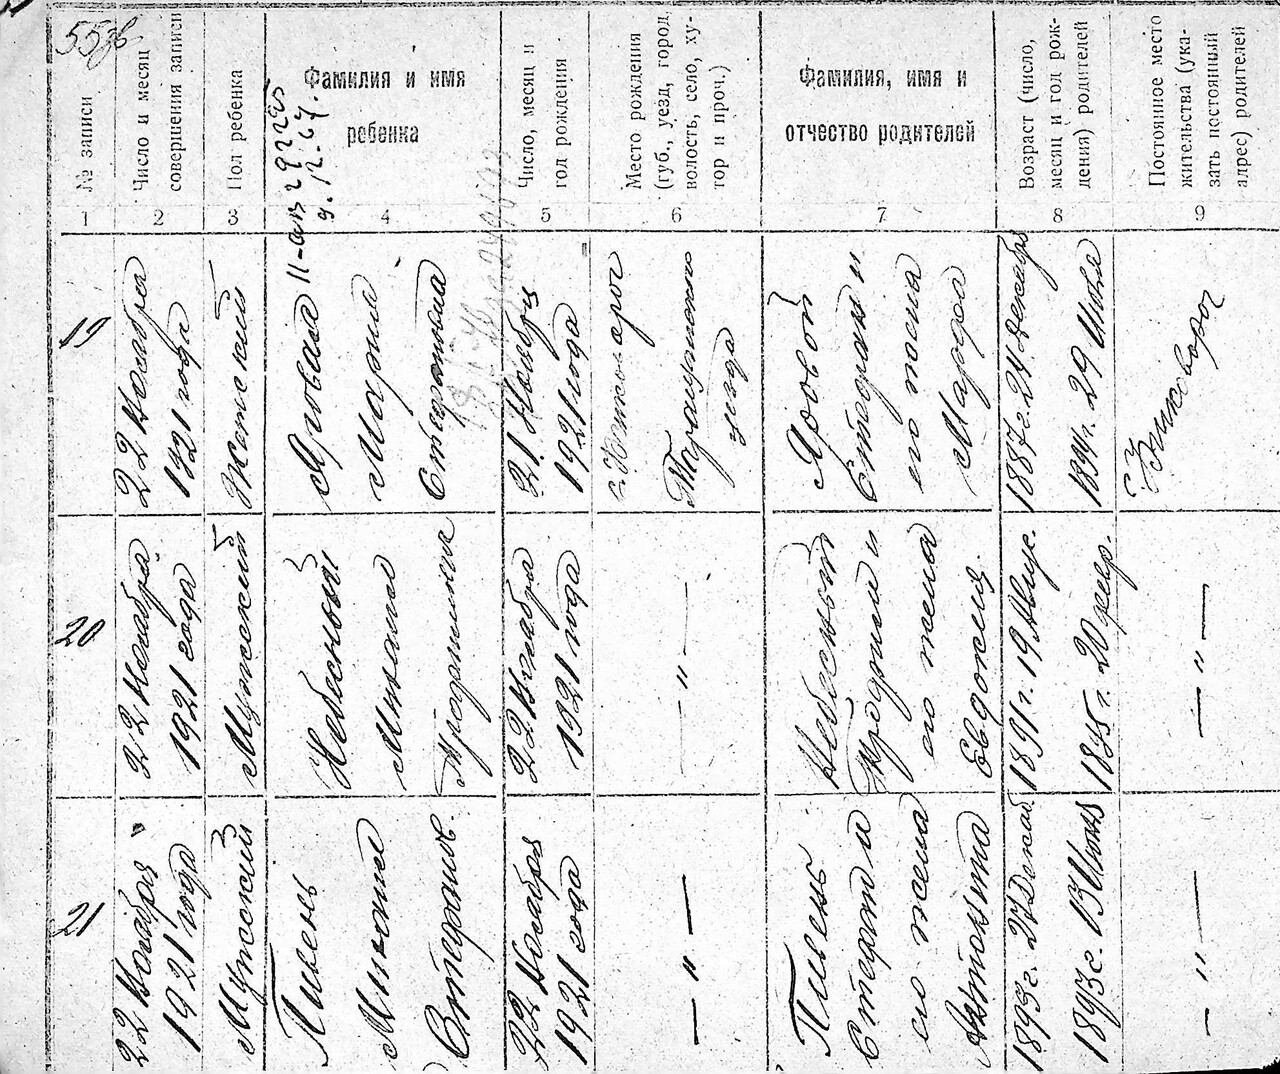 55 зв
№ записи
Число и месяц
совершения записи
Пол ребенка
Фамилия и имя
ребенка
Число, месяц и
год рождения
Место рождения
(губ., уезд, город,
волость, село, ху-
тор и проч.)
Фамилия, имя и
отчество родителей
Возраст (число,
месяц и год рож-
дения) родителей
Постоянное место
жительства (ука-
зать постоянный
адрес) родителей
1
2
3
4
5
6
7
8
9
19
22 Ноября
1921 года
Женский
Яровая
Мария
Стефановна
21 Ноября
1921 года
Таращанского
уезда
Яровой
Стефан и
его жена
Марфа
1887 г. 24 декабря
1894 г. 29 Июня
20
22 Ноября
1921 года
Мужский
Небесный
Михаил
22 Ноября
1921 года
— " —
Небесный
и
его жена
Евдокия
1891 г. 19 Авгус.
г. 20
— " —
21
22 Ноября
1921 года
Мужской
Пивень
Михаил
Стефанов.
22 Ноября
1921 года
— " —
Пивень
Стефан и
его жена
1893 г. 27 Декаб.
1893 г. 13 Июня
— " —